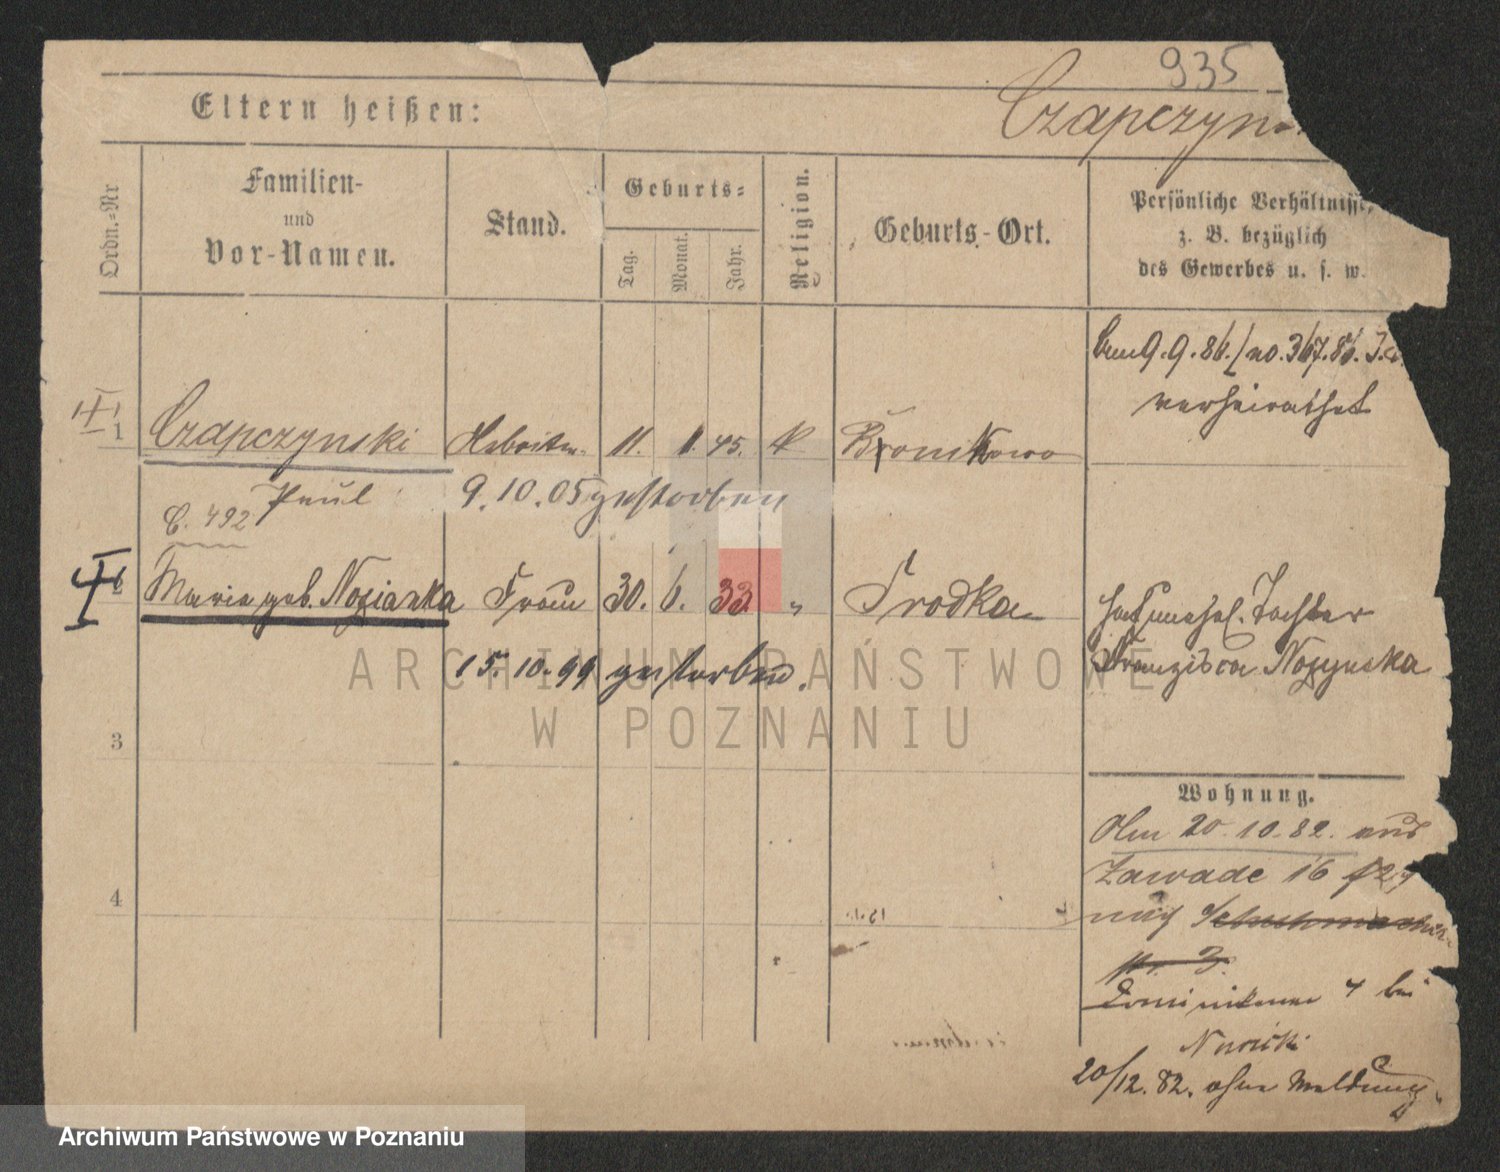 935
Eltern heißen:
Czapczyn
Ordn.-Nr
Familien-
und
Vor-Namen.
Stand.
Geburts-
Tag.
Monat.
Jahr.
Religion.
Geburts-Ort.
Persönliche Verhältnisse,
z. B. bezüglich
des Gewerbes u. s. w.
9.9.86. no. 367.86.
verheirathet
1
Czapczynski
Arbeiter
11. 1. 45. k
Bronikowo
Paul
9.10.05 gestorben
C. 492
2
Maria geb. Nozianka
Frau
30. 6. 33 "
Brodka
hat unehel. Tochter
Franziska Nozynska
15.10.99 gestorben.
3
Wohnung.
Am 20.10.82. aus
Zawade 16
nach
4
Dominikaner 4 bei
Nowicki
20/12.82. ohne Meldung.
ARCHIWUM PAŃSTWOWE
W POZNANIU
Archiwum Państwowe w Poznaniu